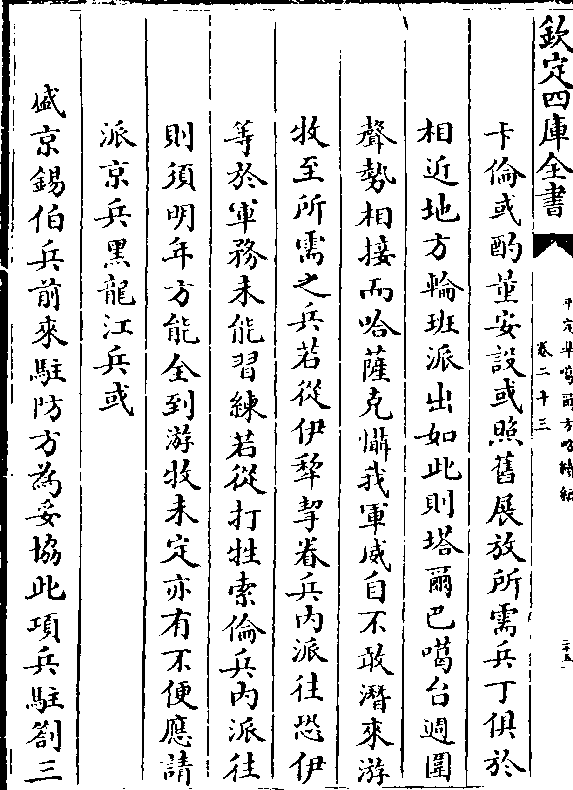 欽定四庫全書
平定準噶爾方略續編
卷二十三
二十五
卡倫或酌量安設或照舊展放所需兵丁俱於
相近地方輪班派出如此則塔爾巴噶台週圍
聲勢相接而哈薩克懾我軍威自不敢潛來游
牧至所需之兵若從伊犂挈眷兵內派往恐伊
等於軍務未能習練若從打牲索倫兵內派往
則須明年方能全到游牧未定亦有不便應請
派京兵黑龍江兵或
盛京錫伯兵前來駐防方為妥協此項兵駐劄三